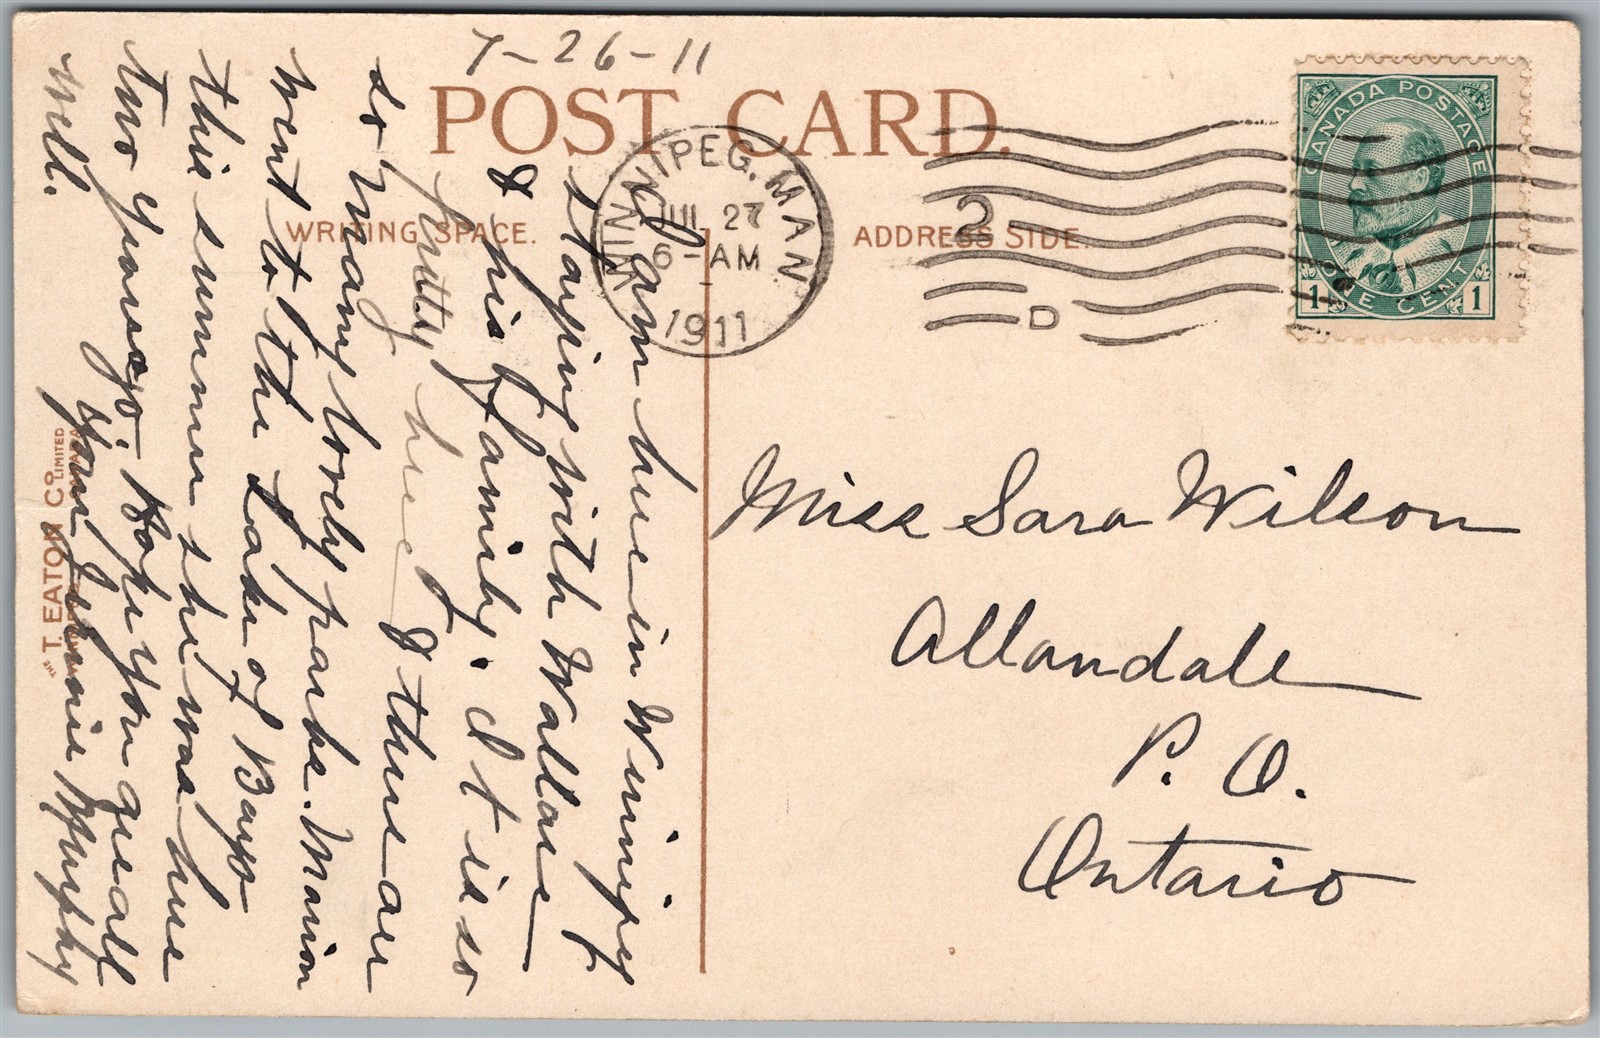 7-26-11
POST CARD.
WRITING SPACE.
ADDRESS SIDE.
WINNIPEG. MAN
JUL 27
6-AM
1911
2
D
CANADA POSTAGE
1 ONE CENT 1
I am here in Winnipeg
staying with Wallace
& his family. It is so
pretty here & there are
so many lovely parks. Marion
went to the Lake of Bays
this summer she was here
two years ago. Hope you are all
well.
Your Jennie Murphy
THE T. EATON CO. LIMITED
CANADA
Miss Sara Wilson
Allandale
P. O.
Ontario